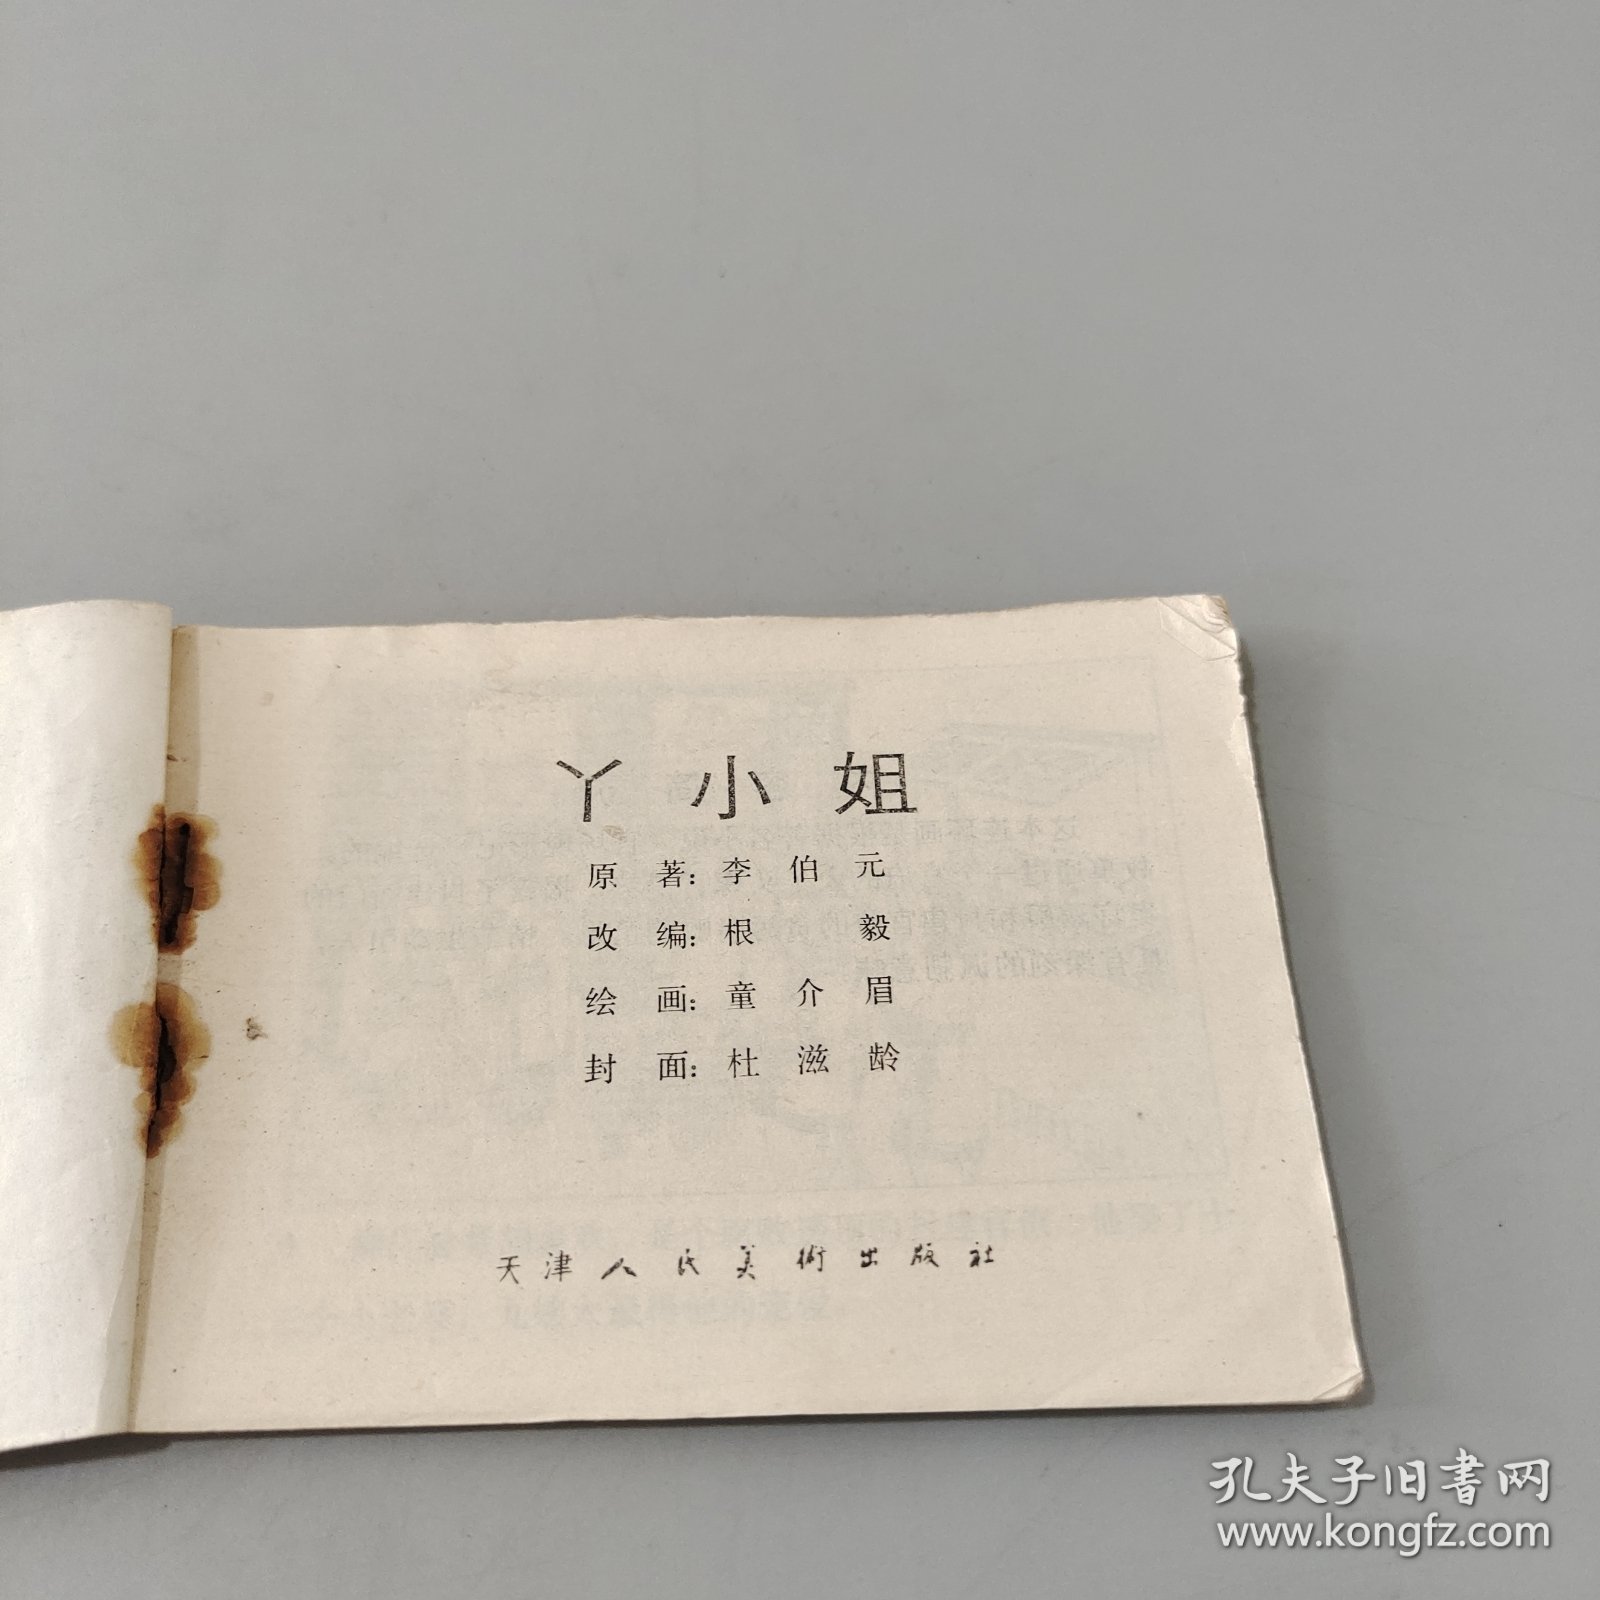 丫小姐
原著：李伯元
改编：根毅
绘画：童介眉
封面：杜滋龄
天津人民美術出版社
孔夫子旧书网
www.kongfz.com